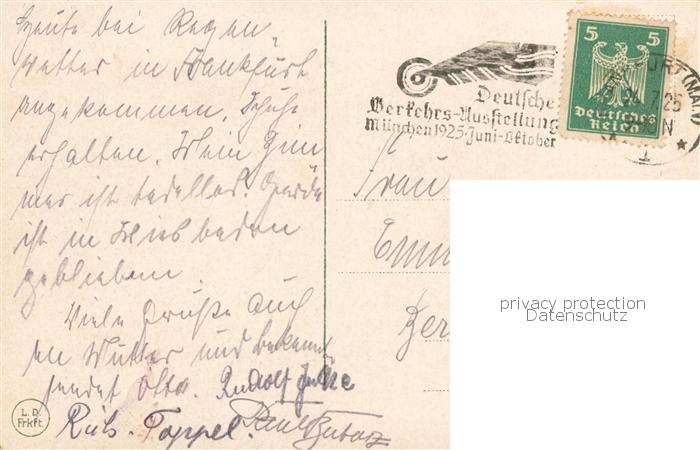 Heute bei Regen-
wetter in Frankfurt
angekommen, Schuhe
erhalten. Mein Zim
mer ist tadellos.
ist in Wiesbaden
geblieben.
Viele Grüße auch
an Mutter und
sendet Otto. Rudolf
Rich. Toppel. Paul
L.D.
Frkft.
Deutsche
Verkehrs-Ausstellung
München 1925 Juni-Oktober
5 5
Deutsches
Reich
FURT (MAIN)
7.25
N
* 1 *
Frau
Emm
Ber
privacy protection
Datenschutz